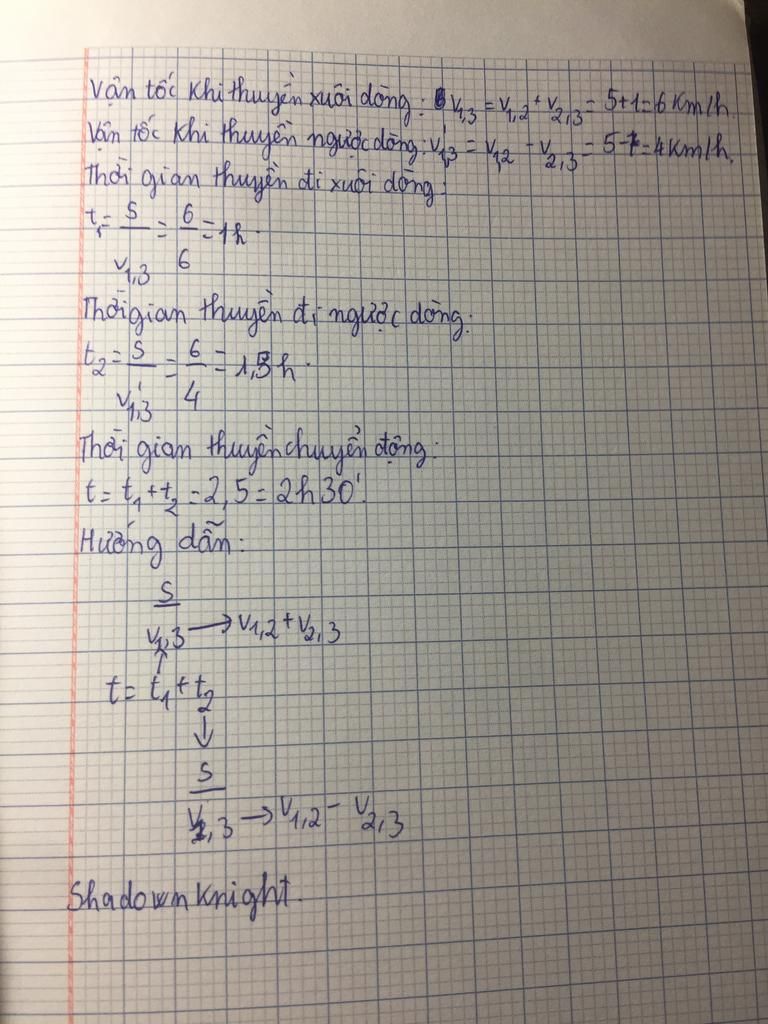 Vận tốc khi thuyền xuôi dòng: v1,3 = v1,2 + v2,3 = 5+1=6 Km/h.
Vận tốc khi thuyền ngược dòng: v'1,3 = v1,2 - v2,3 = 5-1=4Km/h.
Thời gian thuyền đi xuôi dòng:
t1 = S/v1,3 = 6/6 = 1h.
Thời gian thuyền đi ngược dòng:
t2 = S/v'1,3 = 6/4 = 1,5h.
Thời gian thuyền chuyển động:
t = t1 + t2 = 2,5 = 2h30'.
Hướng dẫn:
S
v1,3 → v1,2 + v2,3
↑
t = t1 + t2
↓
S
v2,3 → v1,2 - v2,3
Shadown Knight.